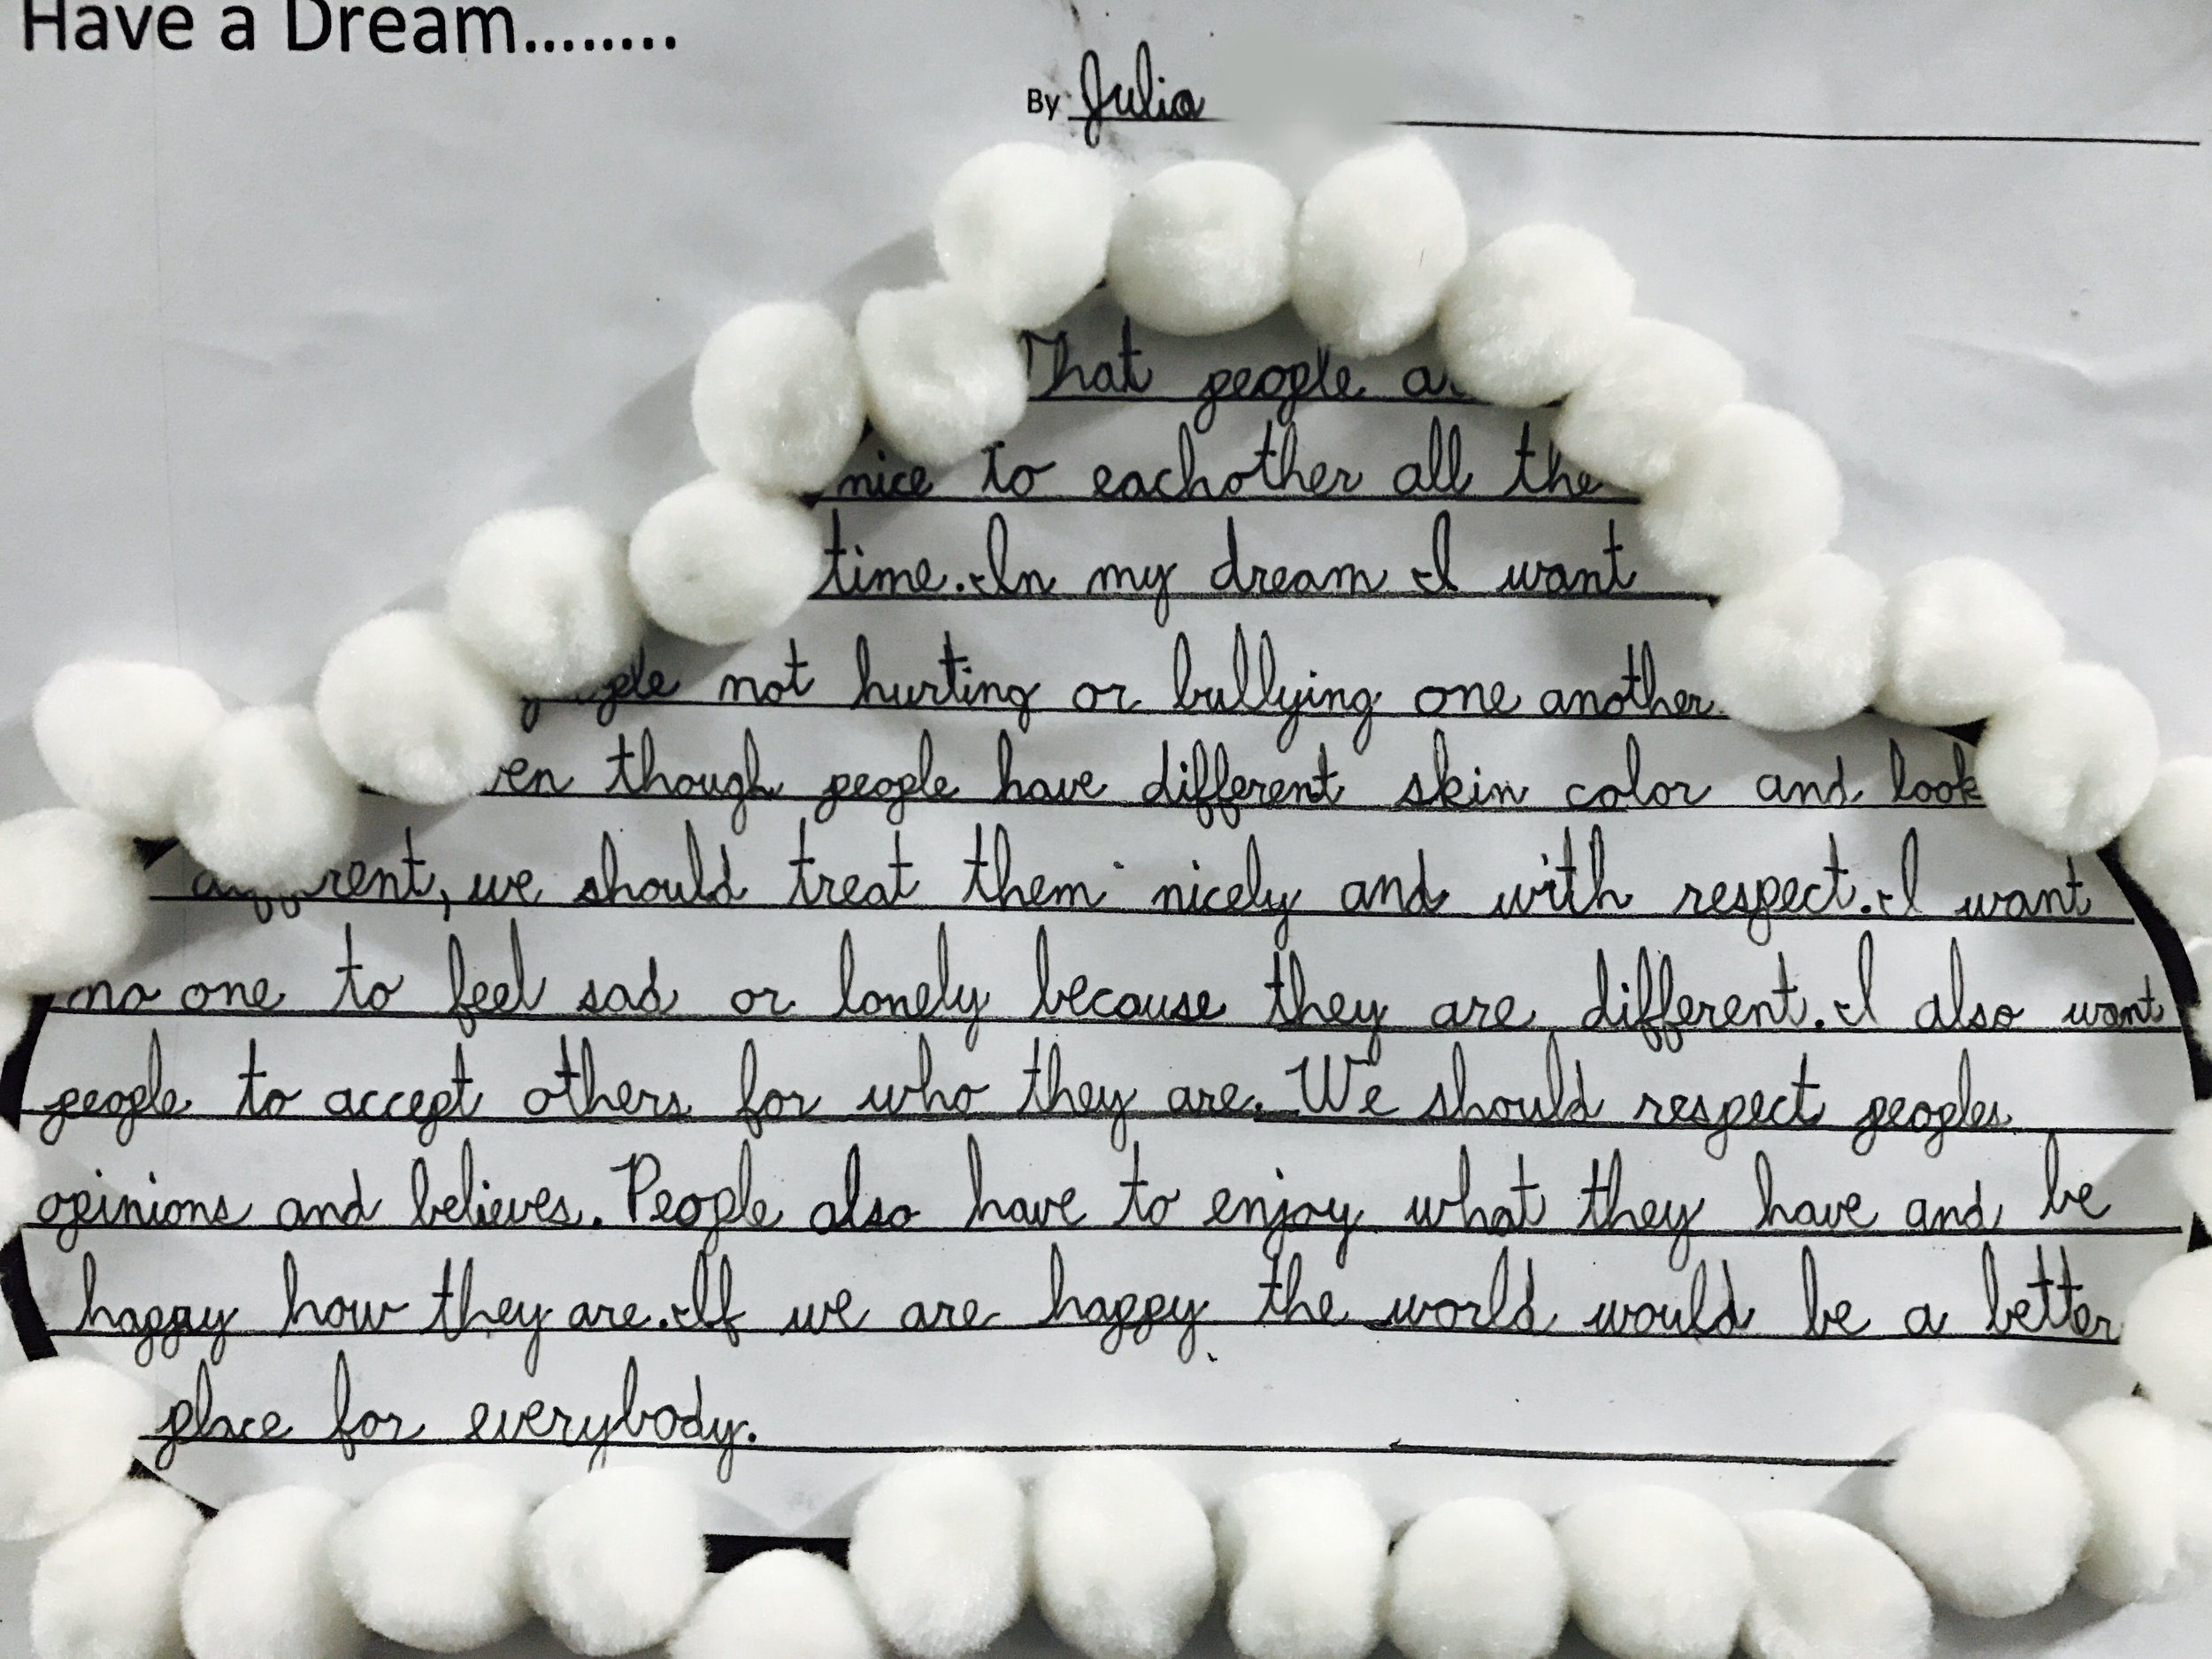 Have a Dream........
By Julia
That people
nice to eachother all the
time. In my dream I want
not hurting or bullying one another.
though people have different skin color and look
we should treat them nicely and with respect. I want
no one to feel sad or lonely because they are different. I also want
people to accept others for who they are. We should respect peoples
opinions and believes. People also have to enjoy what they have and be
happy how they are. If we are happy the world would be a better
place for everybody.